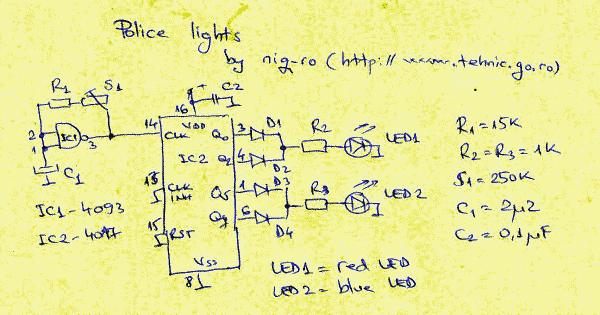 Police lights
by nig-ro (http://www.tehnic.go.ro)
R1 S1
C2
16
2 IC1 3
1
C1
14 CLK VDD Q0 3 D1 R2 LED1
IC2 4 D2
13 CLK INH Q5 1 D3 R3 LED2
15 RST 6 D4
VSS
8
IC1-4093
IC2-4017
R1=15K
R2=R3=1K
S1=250K
C1=2µ2
C2=0,1µF
LED1= red LED
LED2= blue LED